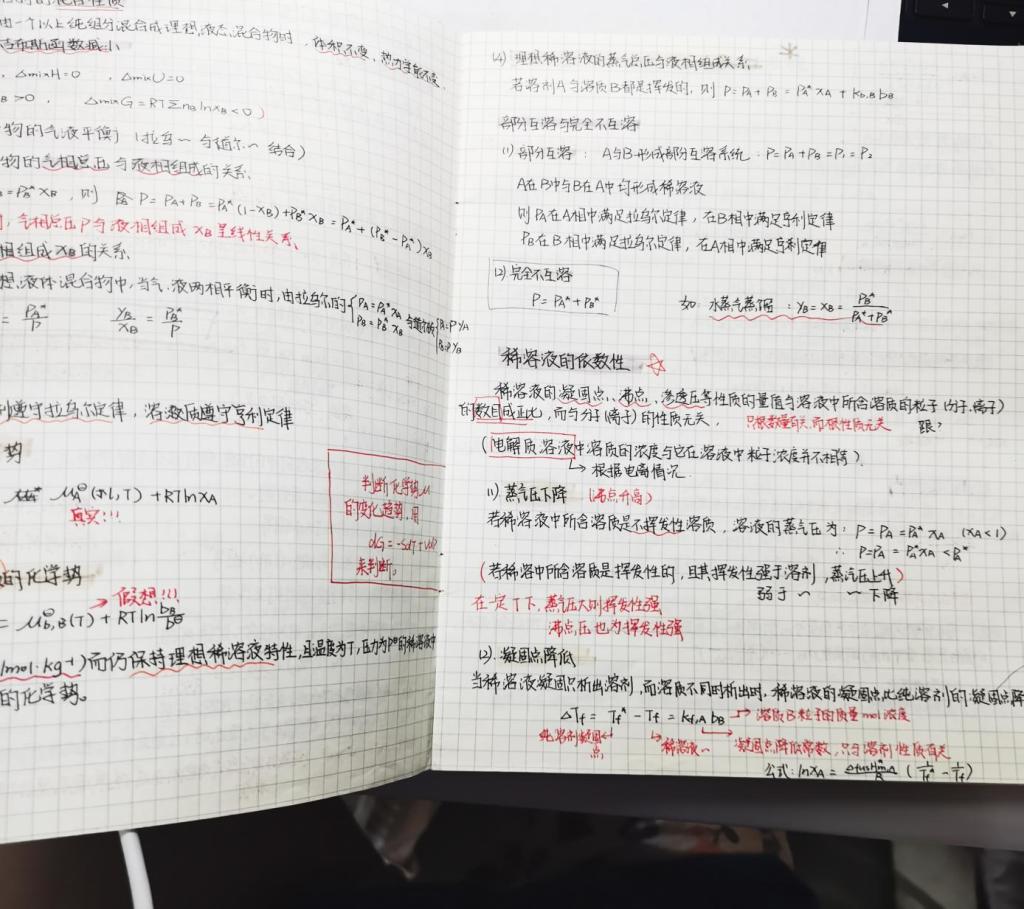 由一个以上纯组分混合成理想液态混合物时，体积不变，热力学能不变，
吉布斯函数减小
，ΔmixH=0，ΔmixU=0
B>0，ΔmixG=RTΣnBlnxB<0）
物的气液平衡）（拉乌～与道尔～结合）
物的气相总压与液相组成的关系
B=PB*xB，则 P=PA+PB=PA*(1-xB)+PB*xB=PA*+(PB*-PA*)xB
，气相总压P与液相组成xB呈线性关系
相组成xB的关系
想液体混合物中，当气、液两相平衡时，由拉乌尔的{PA=PA*xA PB=PB*xB 与道尔的{PA=PyA PB=PyB
=PA*/P yB/xB=PB*/P
遵守拉乌尔定律，溶质B遵守亨利定律
势
μA⊖(l,T)+RTlnxA
真实!!!
判断化学势μ
的变化趋势，用
dG=-SdT+VdP
来判断。
的化学势
假想!!!
=μb,B⊖(T)+RTln bB/b⊖
1mol·kg-1)而仍保持理想稀溶液特性，且温度为T，压力为P⊖的稀溶液中
的化学势。
(4) 理想稀溶液的蒸气总压与液相组成关系
若溶剂A与溶质B都是挥发的，则 P=PA+PB=PA*xA+kb,BbB
部分互溶与完全不互溶
(1) 部分互溶：A与B形成部分互溶系统：P=PA+PB=P1=P2
A在B中与B在A中均形成稀溶液
则PA在A相中满足拉乌尔定律，在B相中满足亨利定律
PB在B相中满足拉乌尔定律，在A相中满足亨利定律
(2) 完全不互溶
P=PA*+PB*
如：水蒸气蒸馏：yB=xB=PB*/(PA*+PB*)
稀溶液的依数性 ☆
稀溶液的凝固点、沸点、渗透压等性质的量值与溶液中所含溶质的粒子(分子、离子)
的数目成正比，而与分子(离子)的性质无关，只跟数量有关，而跟性质无关
跟?
(电解质溶液中溶质的浓度与它在溶液中粒子浓度并不相等)
→根据电离情况
(1) 蒸气压下降（沸点升高）
若稀溶液中所含溶质是不挥发性溶质，溶液的蒸气压为：P=PA=PA*xA (xA<1)
∴P=PA=PA*xA<PA*
(若稀溶中所含溶质是挥发性的，且其挥发性强于溶剂，蒸气压上升)
弱于～ ～下降
在一定T下，蒸气压大则挥发性强
沸点压也为挥发性强
(2). 凝固点降低
当稀溶液凝固只析出溶剂，而溶质不同时析出时，稀溶液的凝固点比纯溶剂的凝固点降
ΔTf=Tf*-Tf=kf,AbB→溶质B粒子的质量mol浓度
纯溶剂凝固点
稀溶液～
凝固点降低常数，只与溶剂性质有关
公式：lnxA=ΔfusHm,A*/R(1/Tf*-1/Tf)